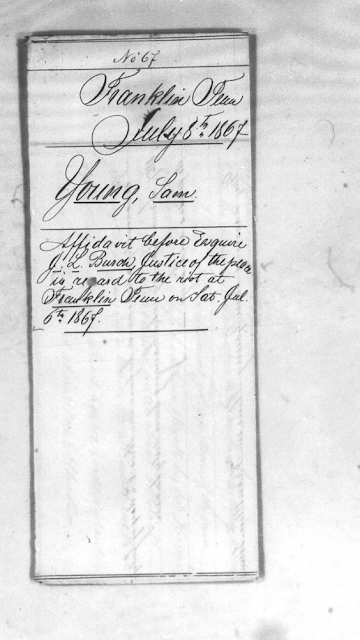 No 67
Franklin Tenn
July 8th 1867
Young, Sam.
Affidavit before Esquire
J. L. Busch, Justice of the peace
in regard to the riot at
Franklin Tenn on Sat. Jul.
6th 1867.